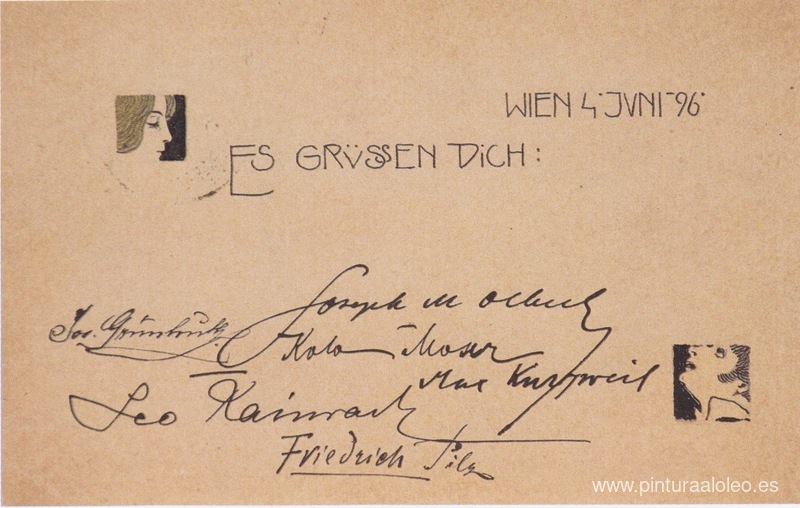 WIEN 4. JVNI 96.
ES GRÜSSEN DiCH:
Joseph M Olbrich
Kolo Moser
Max Kurzweil
Leo Kainradl
Friedrich Pilz
www.pinturaaloleo.es